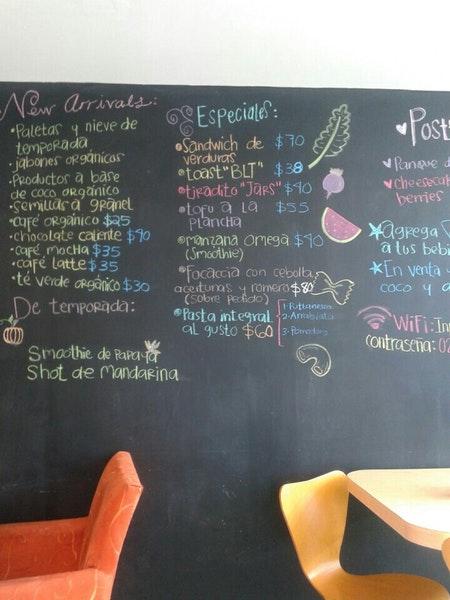 New Arrivals:
•Paletas y nieve de
temporada
•jabones orgánicos
•Productos a base
de coco orgánico
•semillas a granel
•café orgánico $25
•chocolate caliente $40
•café mocha $35
•café latte $35
•té verde orgánico $30
De temporada:
Smoothie de Papaya
Shot de Mandarina
Especiales:
•Sandwich de $70
verduras
•toast "BLT" $38
•tiradito "Jars" $40
•tofu a la $55
plancha
•manzana omega $40
(Smoothie)
•Focaccia con cebolla,
aceitunas y romero $80
(sobre pedido)
•Pasta integral
al gusto $60
1-Puttanesca
2-Arrabiata
3-Pomodoro
Post
Panque d
cheesecak
berries
Agrega
a tus bebi
En venta
coco y a
WiFi: In
contraseña: 02